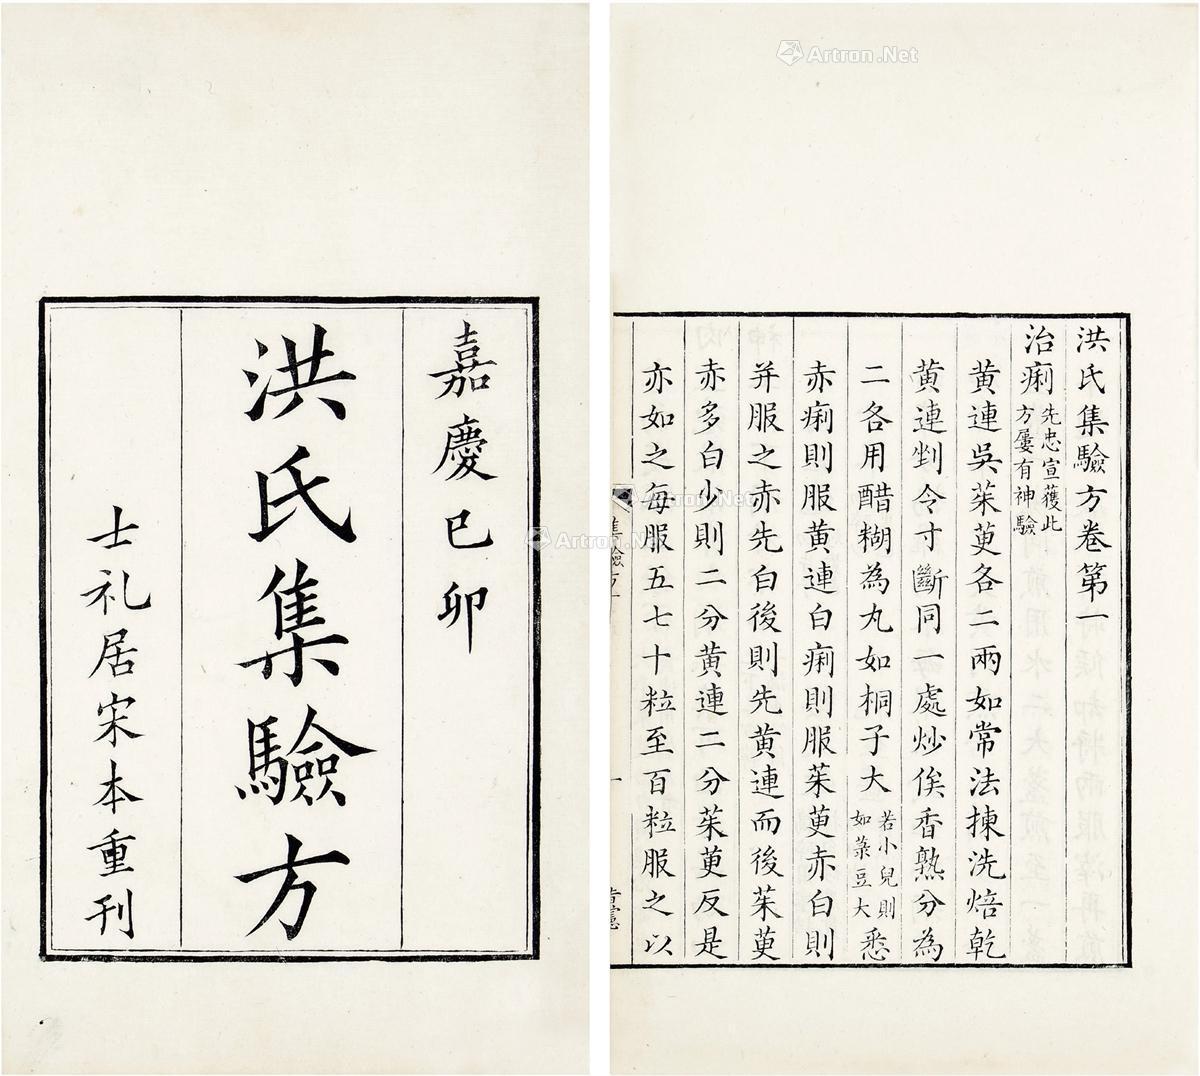 嘉慶己卯
洪氏集驗方
士礼居宋本重刊
洪氏集驗方卷第一
治痢 先忠宣獲此方屢有神驗
黄連吳茱萸各二兩如常法揀洗焙乾
黄連剉令寸斷同一處炒俟香熟分為
二各用醋糊為丸如桐子大 若小兒則如菉豆大 悉
赤痢則服黄連白痢則服茱萸赤白則
并服之赤先白後則先黄連而後茱萸
赤多白少則二分黄連二分茱萸反是
亦如之每服五七十粒至百粒服之以
Artron.Net
Artron.Net
Artron.Net